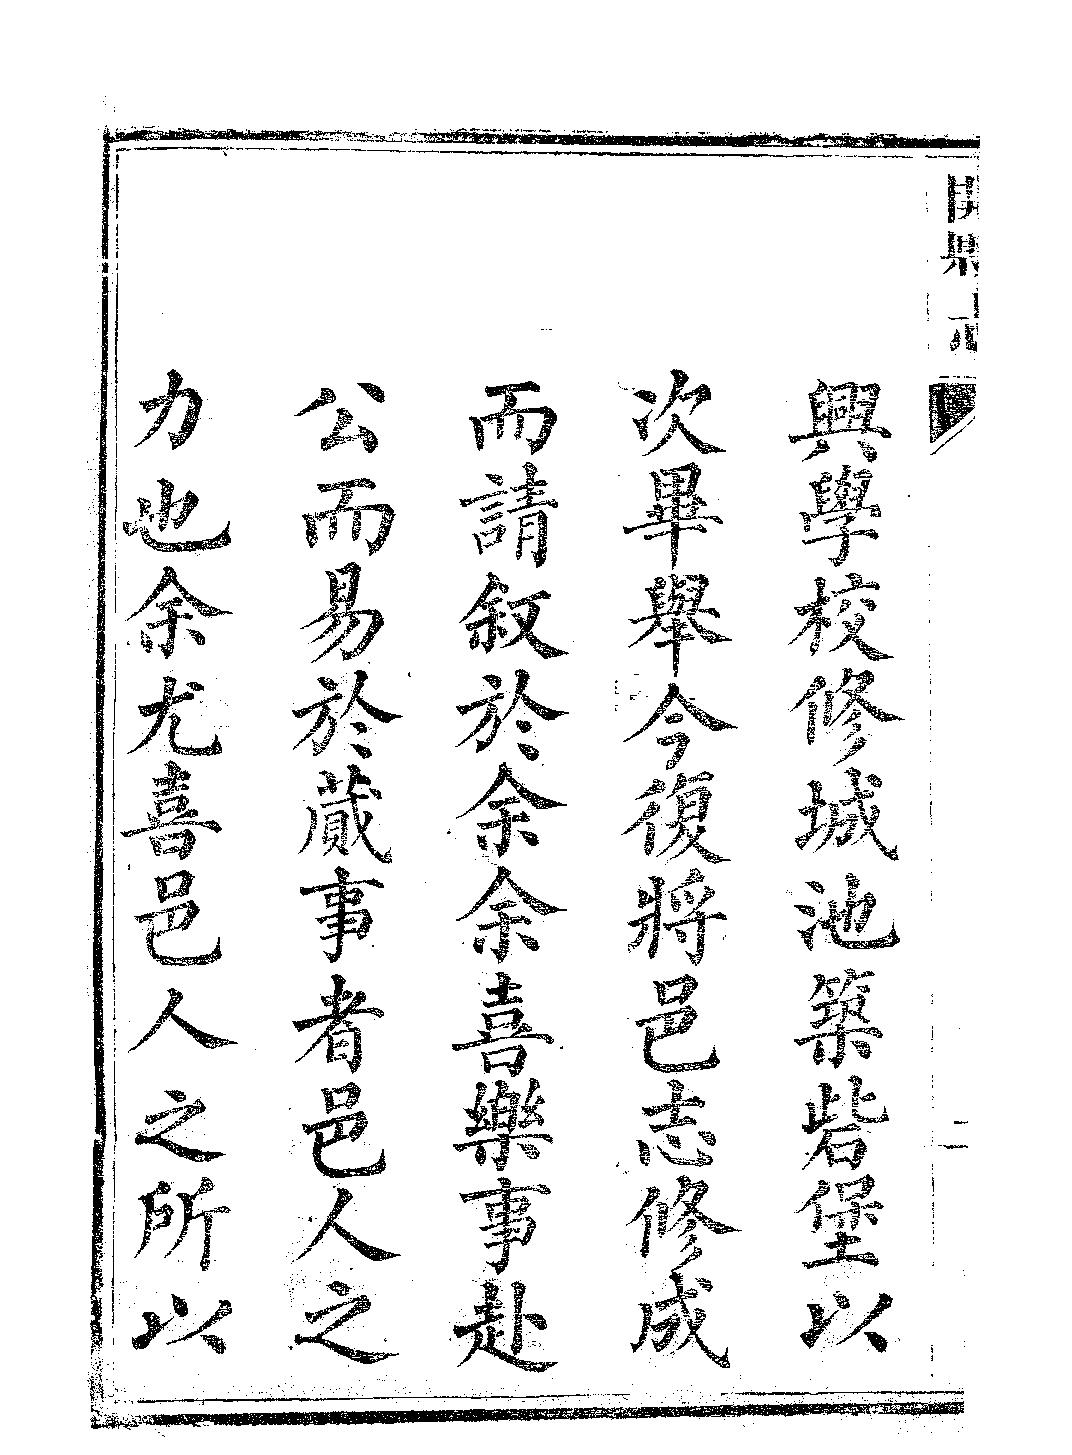 開縣志
二
興學校修城池築砦堡以
次畢舉今復將邑志修成
而請叙於余余喜樂事赴
公而易於蕆事者邑人之
力也余尤喜邑人之所以